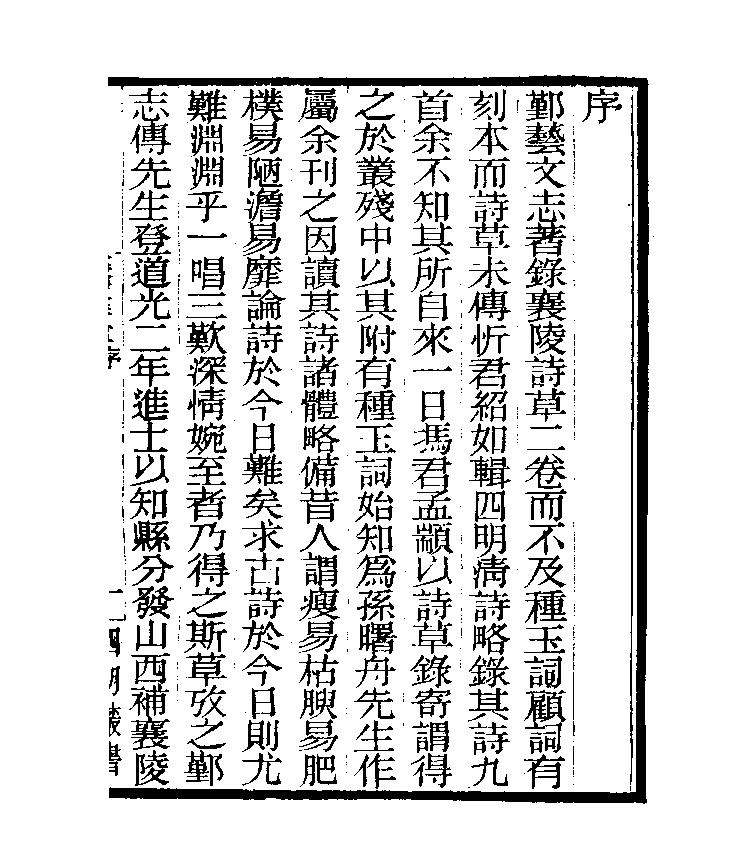 序
鄞藝文志著錄襄陵詩草二卷而不及種玉詞顧詞有
刻本而詩草未傳忻君紹如輯四明淸詩略錄其詩九
首余不知其所自來一日馮君孟顓以詩草錄寄謂得
之於叢殘中以其附有種玉詞始知爲孫曙舟先生作
屬余刊之因讀其詩諸體略備昔人謂瘦易枯腴易肥
樸易陋澹易靡論詩於今日難矣求古詩於今日則尤
難淵淵乎一唱三歎深情婉至者乃得之斯草攷之鄞
志傳先生登道光二年進士以知縣分發山西補襄陵
序
一四明叢書